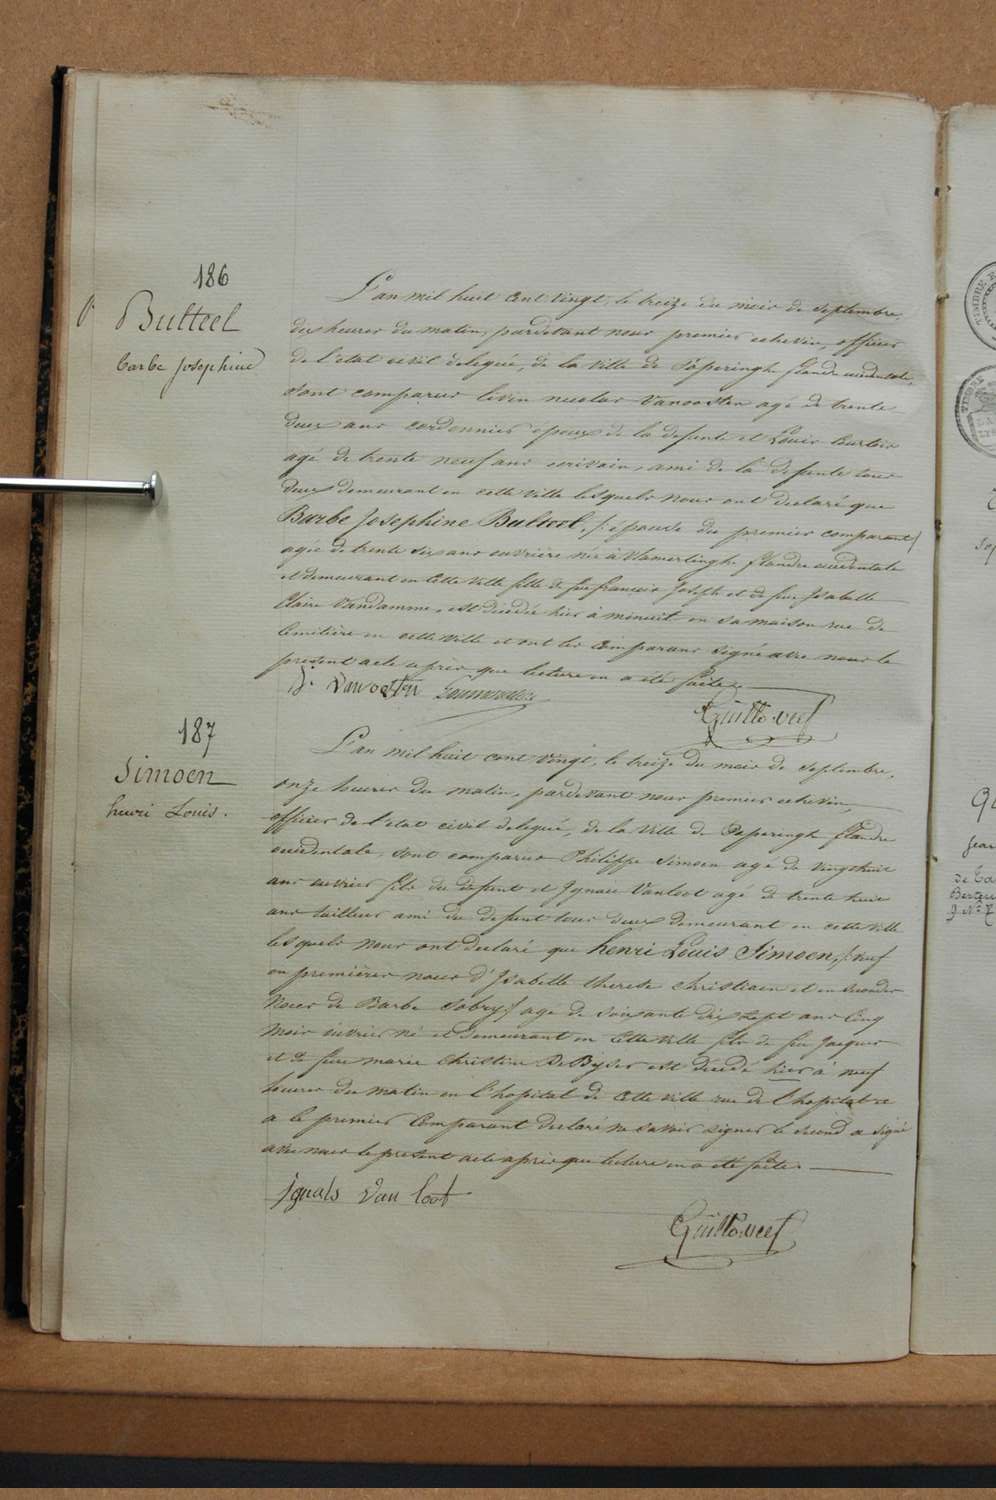 186
Bulteel
barbe Josephine
L'an mil huit cent vingt, le treize du mois de septembre,
dix heures du matin, pardevant nous premier echevin, officier
de l'etat civil deleguée, de la ville de Poperinghe flandre occidentale,
sont comparus livin nicolas Vanoosten agé de trente
deux ans cordonnier epoux de la defunte et Louis
agé de trente neuf ans ecrivain, ami de la defunte tous
deux demeurant en cette ville lesquels nous ont declaré que
Barbe Josephine Bulteel, /: epouse du premier comparant /
agée de trente six ans ouvrière née à Vlamertinghe flandre occidentale
et demeurant en cette ville fille de feu francois Joseph et de feue Isabelle
Claire Vandamme, est décédée hier à minuit en sa maison rue de
Cemitière en cette ville et ont les comparans signé avec nous le
present acte après que lecture en a été faite.
Vanoosten
Guilto.veef
187
Simoen
henri Louis.
L'an mil huit cent vingt, le treize du mois de septembre,
onze heures du matin, pardevant nous premier echevin,
officier de l'etat civil deleguée, de la ville de Poperingh flandre
occidentale, sont comparus Philippe Simoen agé de vingt huit
ans ouvrier fils du defunt et Ignace Vanloot agé de trente huit
ans tailleur ami du defunt tous deux demeurant en cette ville
lesquels nous ont declaré que henri Louis Simoen, /: veuf
en premières noces d'Isabelle therese christiaen et en secondes
Noces de Barbe Sobry / age de soixante dix sept ans cinq
mois ouvrier né et demeurant en cette ville fils de feu Jacques
et de feue marie christine De Byser est decedé hier à neuf
heures du matin en l'hopital de cette ville rue de l'hopital et
a le premier Comparant declaré ne savoir signer le second a signé
avec nous le present acte après que lecture en a été faite.
Ignals Van loot
Guilto.veef